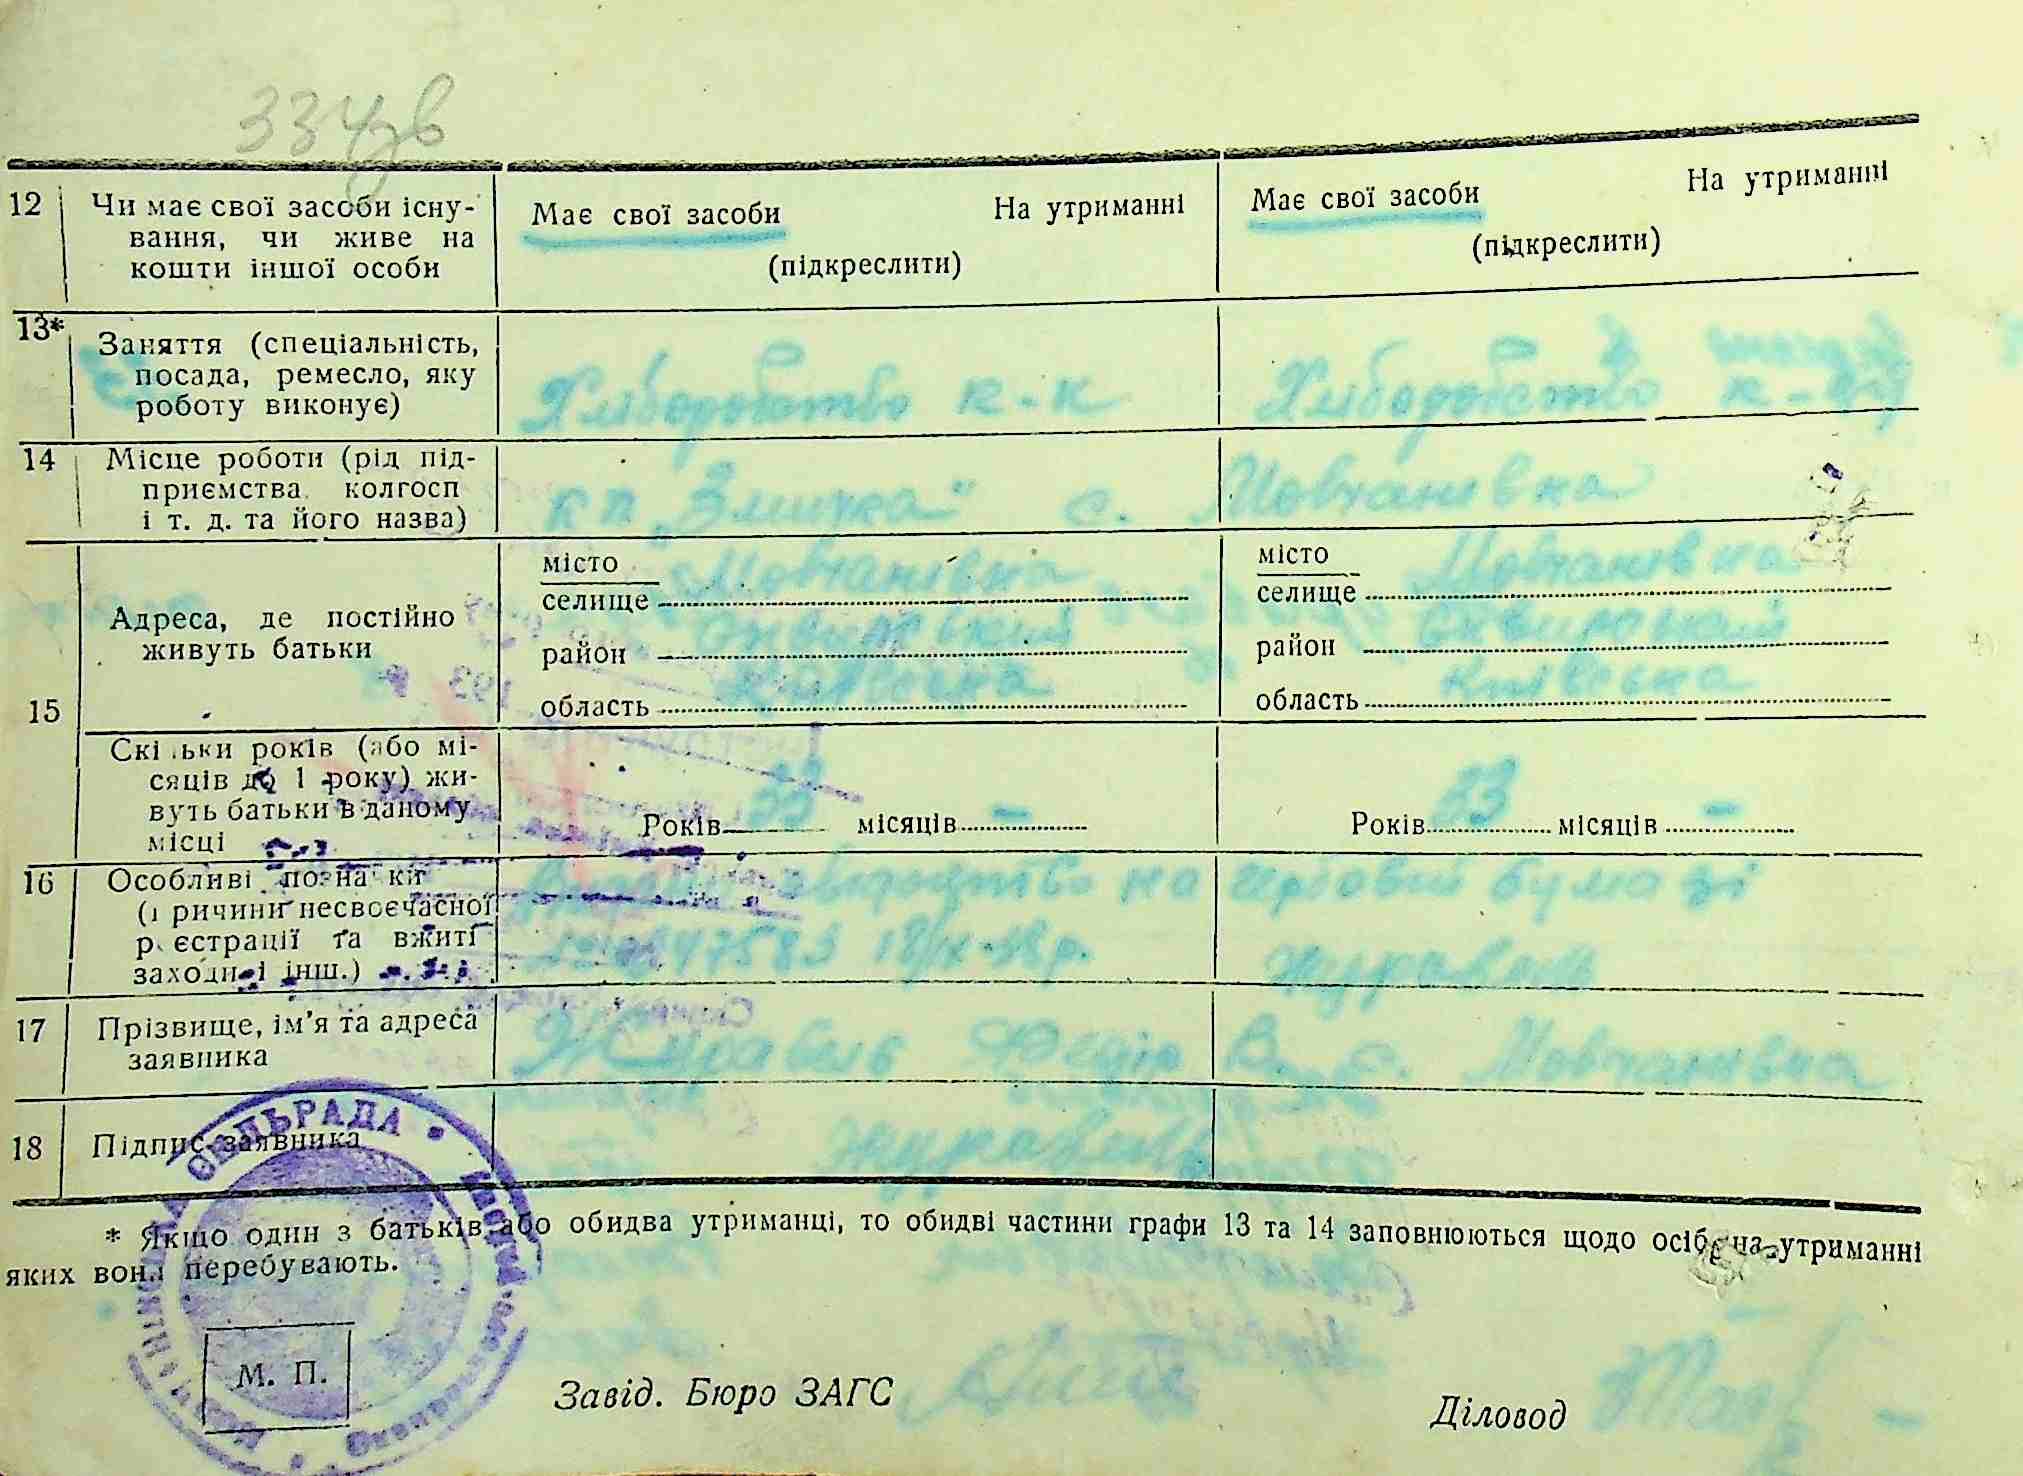 334зв
12 Чи має свої засоби існу-
вання, чи живе на
кошти іншої особи
Має свої засоби На утриманні
(підкреслити)
Має свої засоби На утриманні
(підкреслити)
13* Заняття (спеціальність,
посада, ремесло, яку
роботу виконує)
Хліборобство к-к
Хліборобство
14 Місце роботи (рід під-
приємства, колгосп
і т. д. та його назва)
кп „Змичка" с. Мовчанівка
15 Адреса, де постійно
живуть батьки
місто
селище Мовчанівка
район Сквирський
область Київська
місто
селище Мовчанівка
район Сквирський
область Київська
Скільки років (або мі-
сяців до 1 року) жи-
вуть батьки в даному
місці
Років 33 місяців –
Років 33 місяців –
16 Особливі познаки
(причини несвоєчасної
реєстрації та вжиті
заходи і інш.)
на гербовій бумазі
18/IX-38 р. Журавель
17 Прізвище, ім'я та адреса
заявника
Журавель Федір В. с. Мовчанівка
18 Підпис заявника
Журавель
* Якщо один з батьків або обидва утриманці, то обидві частини графи 13 та 14 заповнюються щодо осіб, на утриманні
яких вони перебувають.
СІЛЬРАДА
М. П.
Завід. Бюро ЗАГС
Діловод